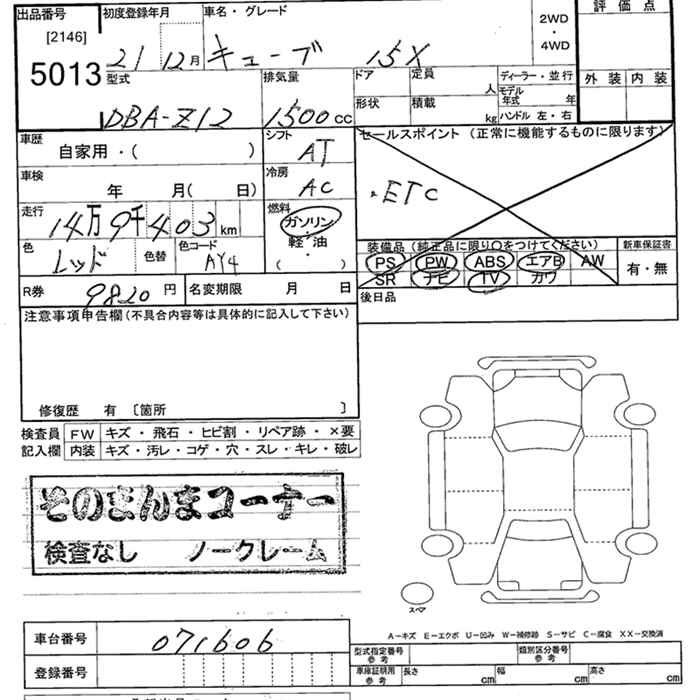 出品番号 初度登録年月 車名・グレード 2WD・4WD 評価点
[2146]
5013 21 12月 キューブ 15X
型式 排気量 ドア 定員 人 ディーラー・並行 外装 内装
DBA-Z12 1500cc 形状 積載 kg モデル年式 年 ハンドル 左・右
車歴 シフト セールスポイント (正常に機能するものに限ります)
自家用・( ) AT
車検 冷房 ・ETC
年 月( 日) AC
走行 燃料
14万9千403km ガソリン
色 色替 色コード 軽・油 装備品 (純正品に限り○をつけてください) 新車保証書
レッド AY4 ・ PS PW ABS エアB AW 有・無
( ) SR ナビ TV カワ
R券 9820円 名変期限 月 日 後日品
注意事項申告欄(不具合内容等は具体的に記入して下さい)
修復歴 有 〔箇所 〕
検査員 FW キズ・飛石・ヒビ割・リペア跡・×要
記入欄 内装 キズ・汚レ・コゲ・穴・スレ・キレ・破レ
そのまんまコーナー
検査なし ノークレーム
スペア
A－キズ E－エクボ U－凹み W－補修跡 S－サビ C－腐食 XX－交換済
車台番号 071606 型式指定番号 参考 類別区分番号 参考
登録番号 車庫証明用 参考 長さ cm 幅 cm 高さ cm